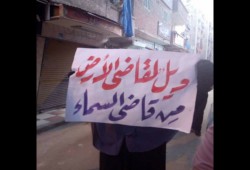 ويل لقاضى الأرض
من قاضى السماء